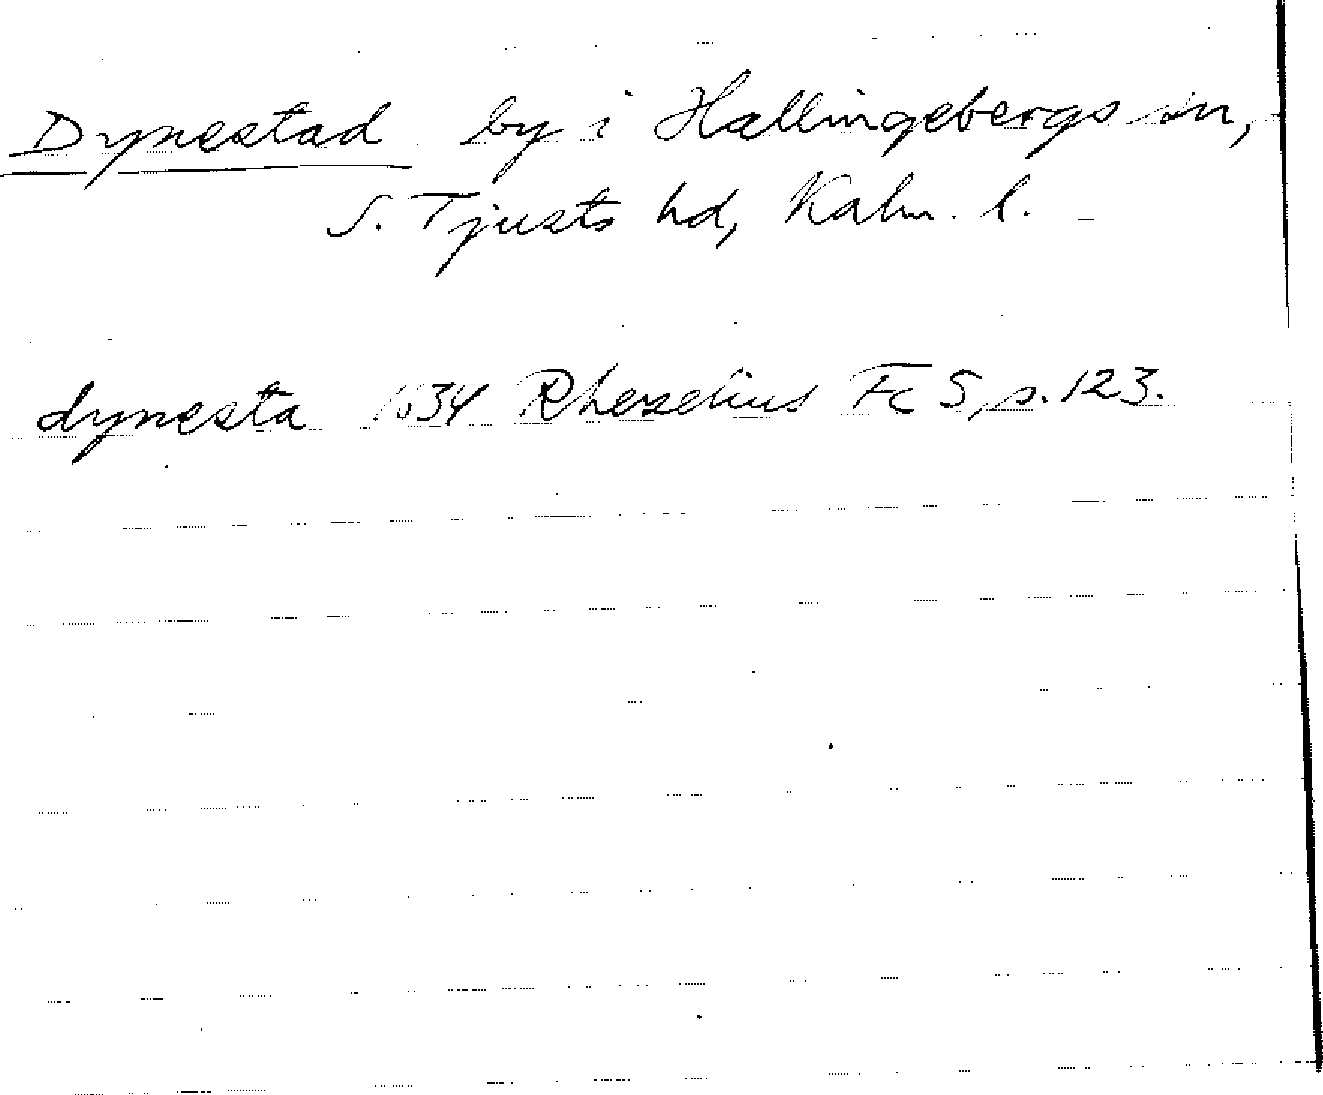 Dynestad by i Hallingebergs sn,
S. Tjusts hd, Kalm. l.
dynesta 1634 Rhezelius Fc 5, s. 123.